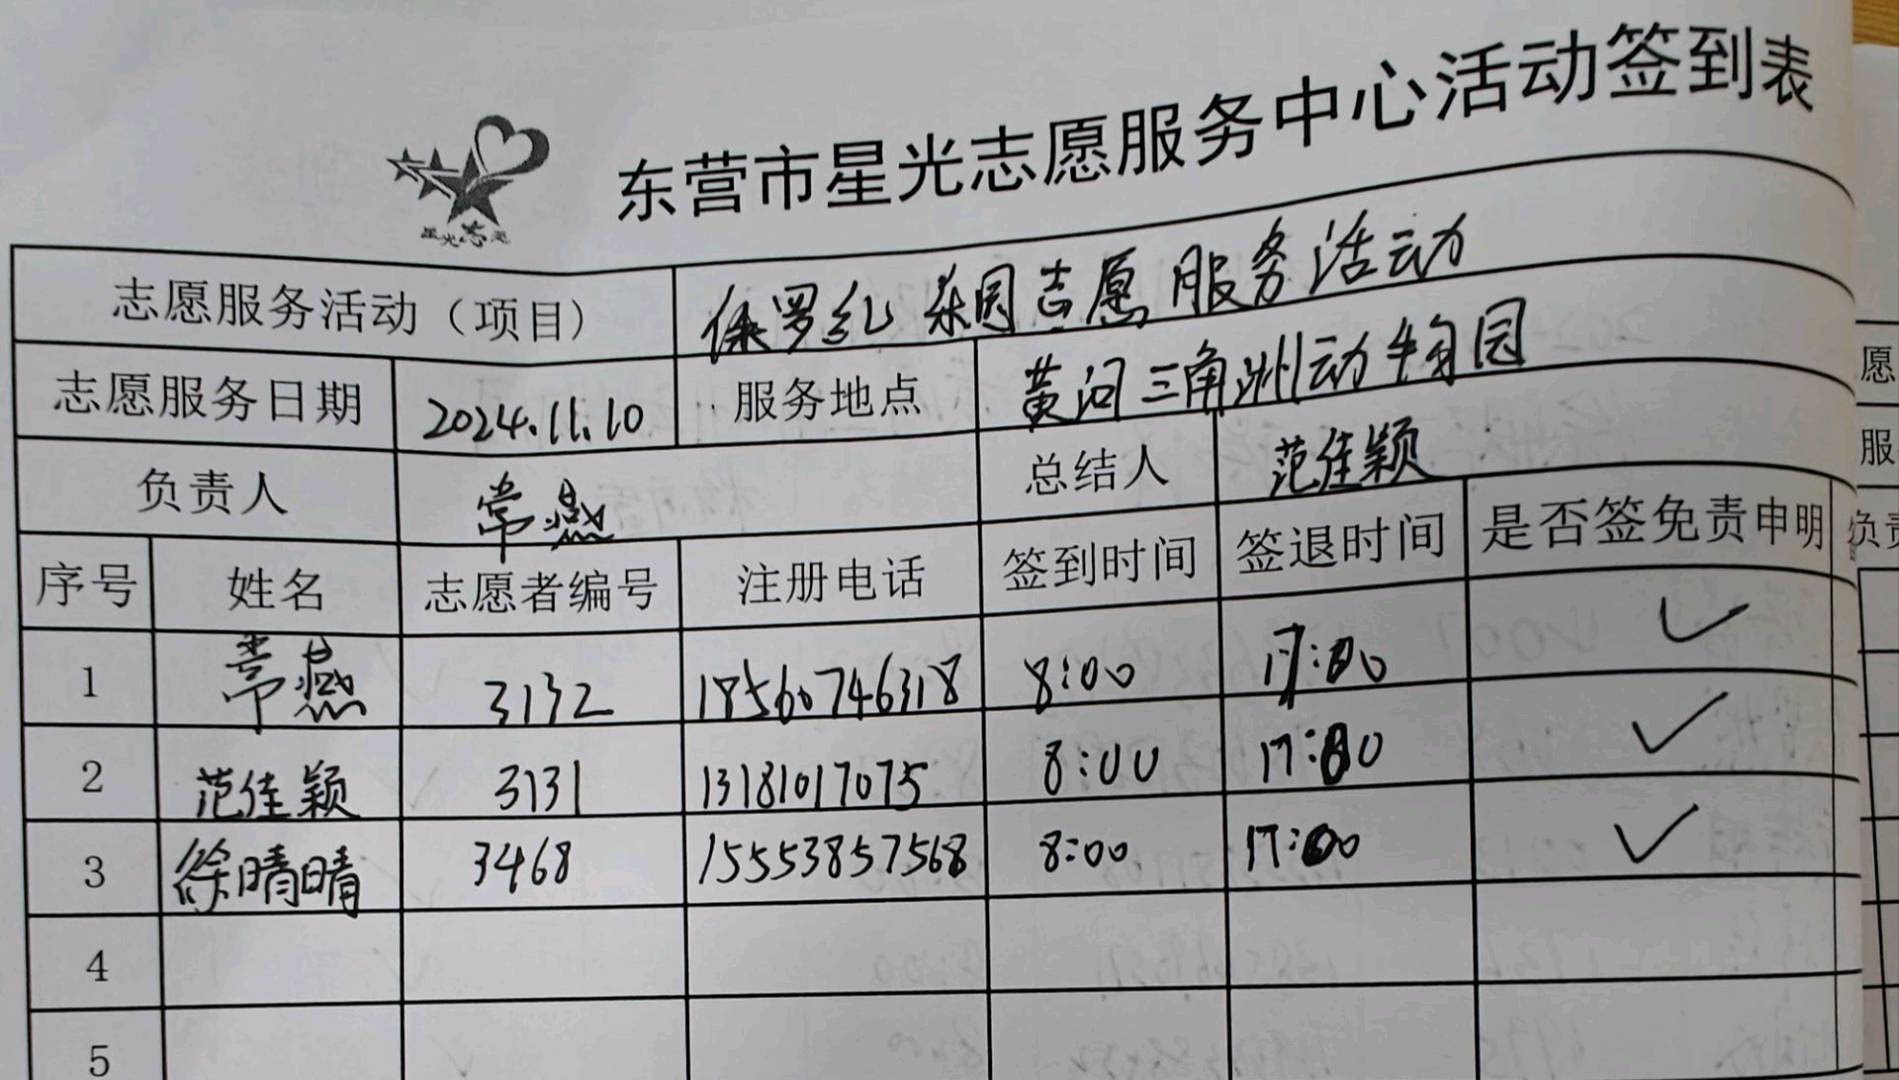 东营市星光志愿服务中心活动签到表
星光志愿
志愿服务活动（项目） 侏罗纪乐园志愿服务活动
志愿服务日期 2024.11.10 服务地点 黄河三角洲动物园
负责人 常燕 总结人 范佳颖
序号 姓名 志愿者编号 注册电话 签到时间 签退时间 是否签免责申明
1 常燕 3132 18560746318 8:00 17:00 ✓
2 范佳颖 3131 13181017075 8:00 17:00 ✓
3 徐晴晴 3468 15553857568 8:00 17:00 ✓
4
5
愿
服
负责